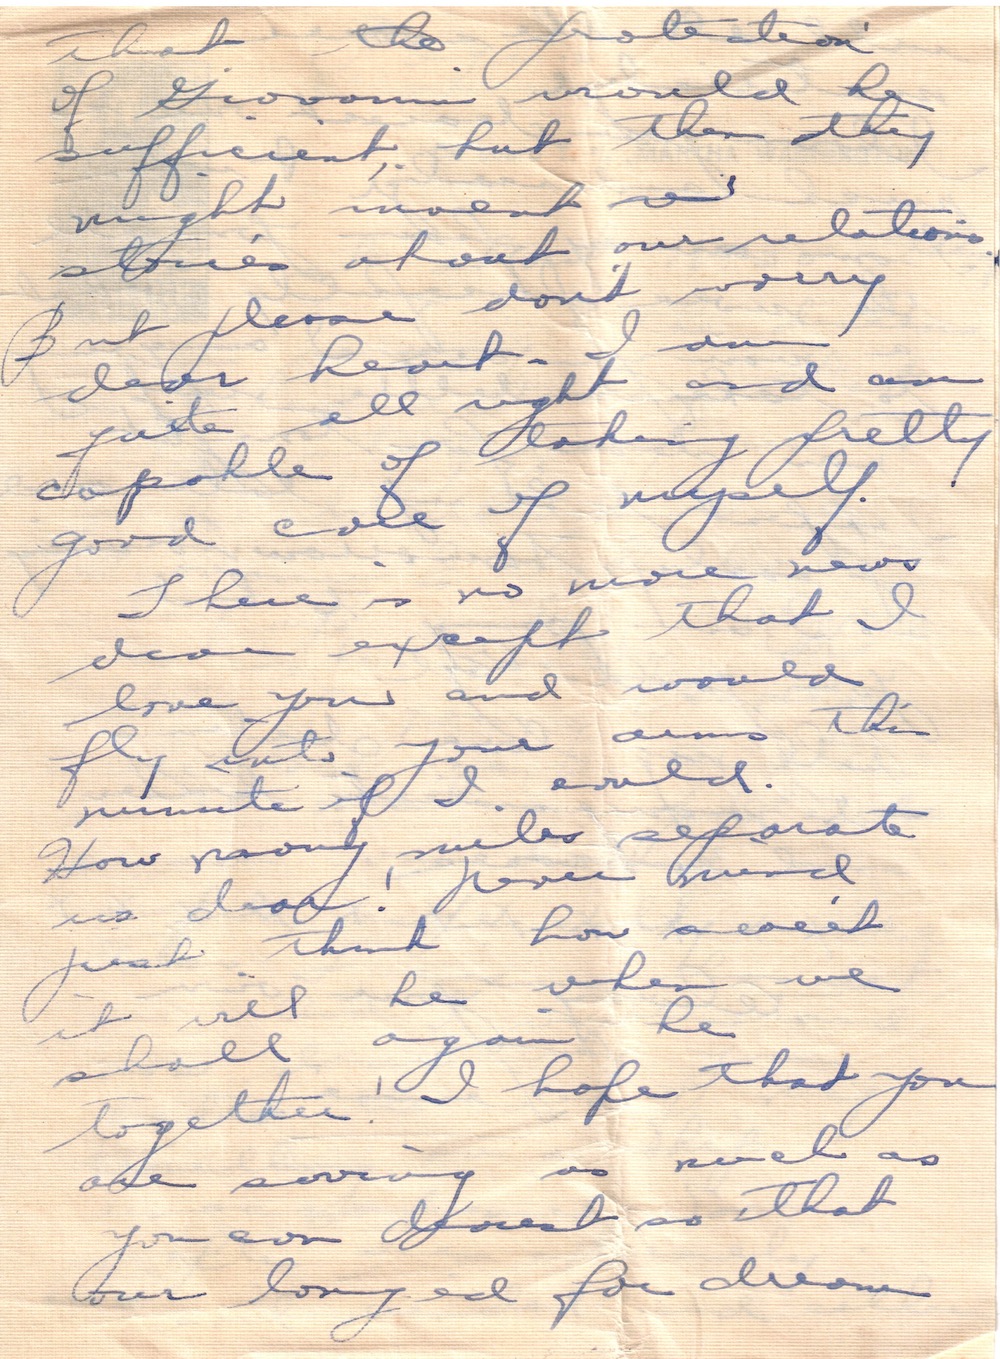 that the protection
of Giovanni would be
sufficient, but then they
might invent
stories about our relations.
But please don't worry
dear heart - I am
quite all right and am
capable of taking pretty
good care of myself.
There is no more news
dear except that I
love you and would
fly into your arms this
minute if I could.
How many miles separate
us dear! Never mind
just think how sweet
it will be when we
shall again be
together! I hope that you
are saving as much as
you can dearest so that
our longed for dream